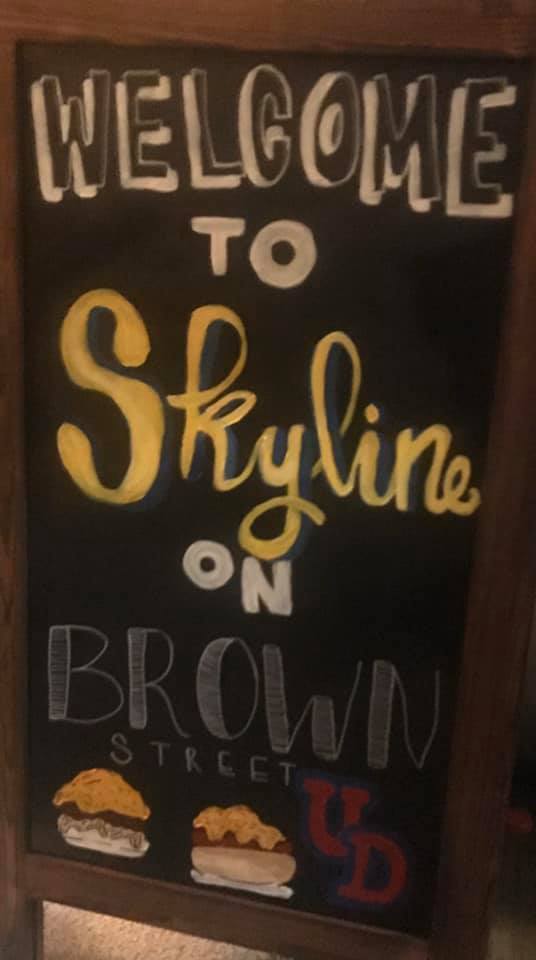 WELCOME
TO
Skyline
ON
BROWN
STREET
UD